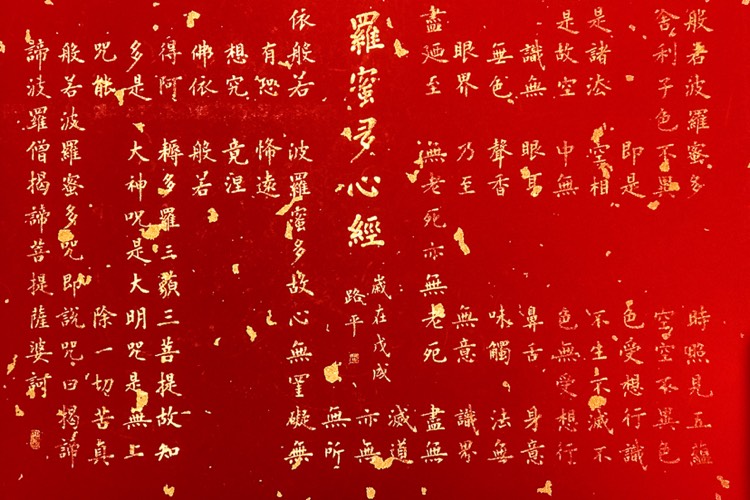 般若波羅蜜多時照見五蘊
舍利子色不異空空不異色
即是色受想行識
是諸法空相不生不滅不
是故空中無色無受想行
識無眼耳鼻舌身意
無色聲香味觸法無
眼界乃至無意識界
盡廼至無老死亦無老死盡無
滅道
羅蜜多心經
歲在戊戌
路平
亦無
無所
依般若波羅蜜多故心無罣礙無
有恐怖遠
想究竟涅
佛依般若
得阿耨多羅三藐三菩提故知
多是大神咒是大明咒是無上
咒能除一切苦真
般若波羅蜜多咒即說咒曰揭諦
諦波羅僧揭諦菩提薩婆訶